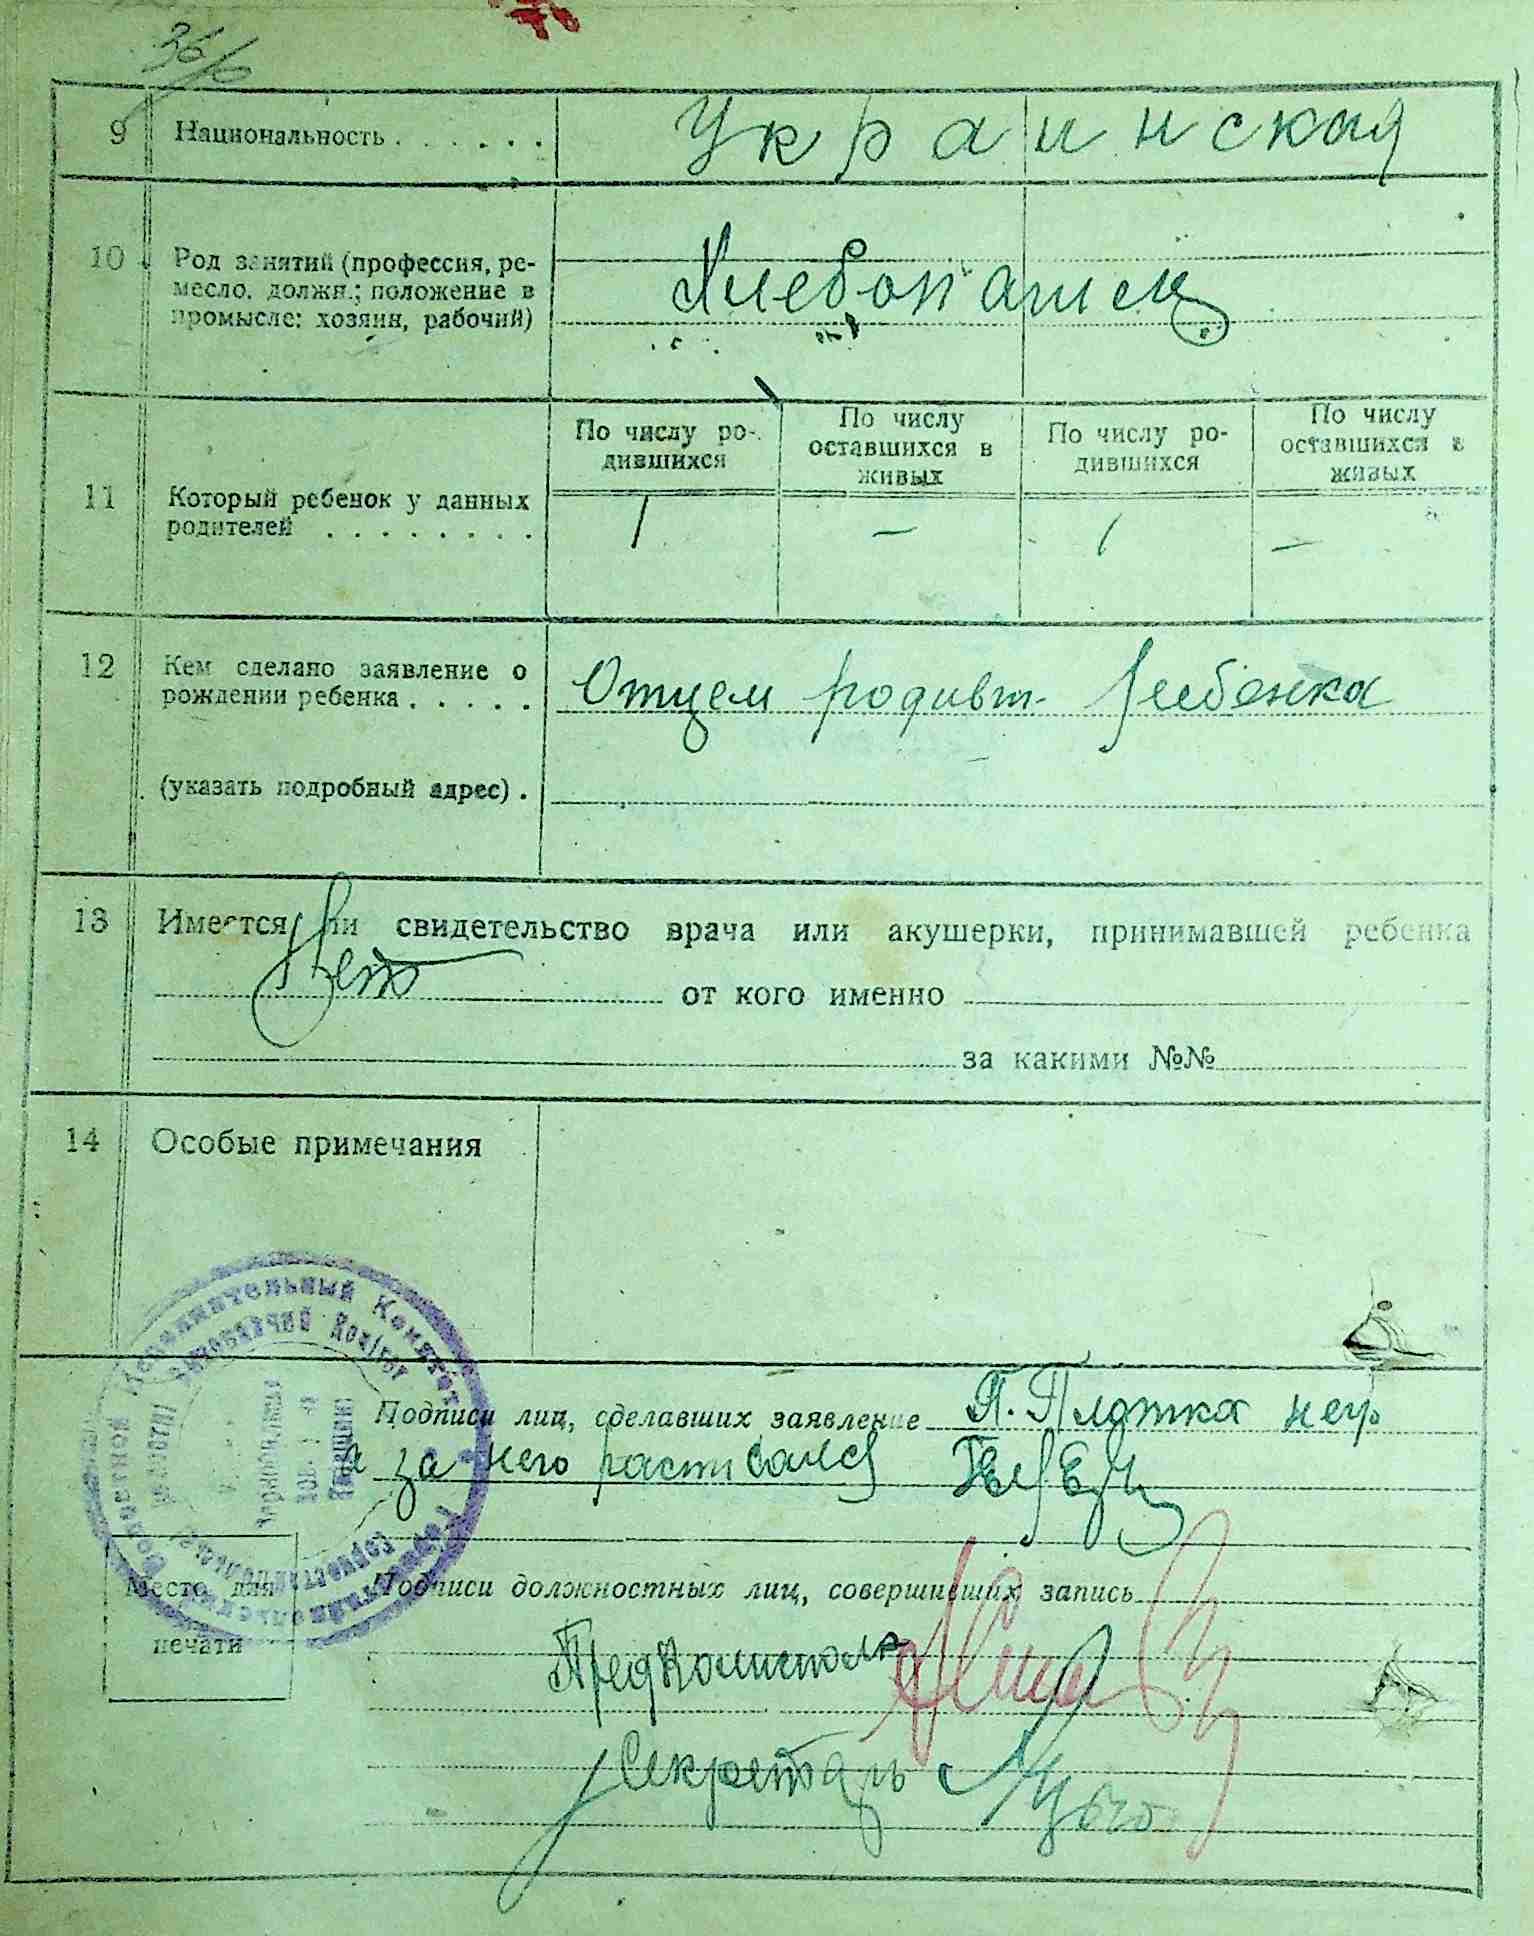 36/0
9 Национальность . . . . . . Украинская
10 Род занятий (профессия, ре-
месло, должн.; положение в
промысле: хозяин, рабочий)
Хлебопашец
11 Который ребенок у данных
родителей . . . . . . . .
По числу ро-
дившихся
По числу
оставшихся в
живых
По числу ро-
дившихся
По числу
оставшихся в
живых
1 — 1 —
12 Кем сделано заявление о
рождении ребенка . . . . .
Отцем родивш. ребенка
(указать подробный адрес) .
13 Имеется ли свидетельство врача или акушерки, принимавшей ребенка
Нет от кого именно
за какими №№
14 Особые примечания
Исполнительный Комитет
Подписи лиц, сделавших заявление П. Плотка негр
а за него расписался
Подписи должностных лиц, совершивших запись
Место для
печати
Секретарь